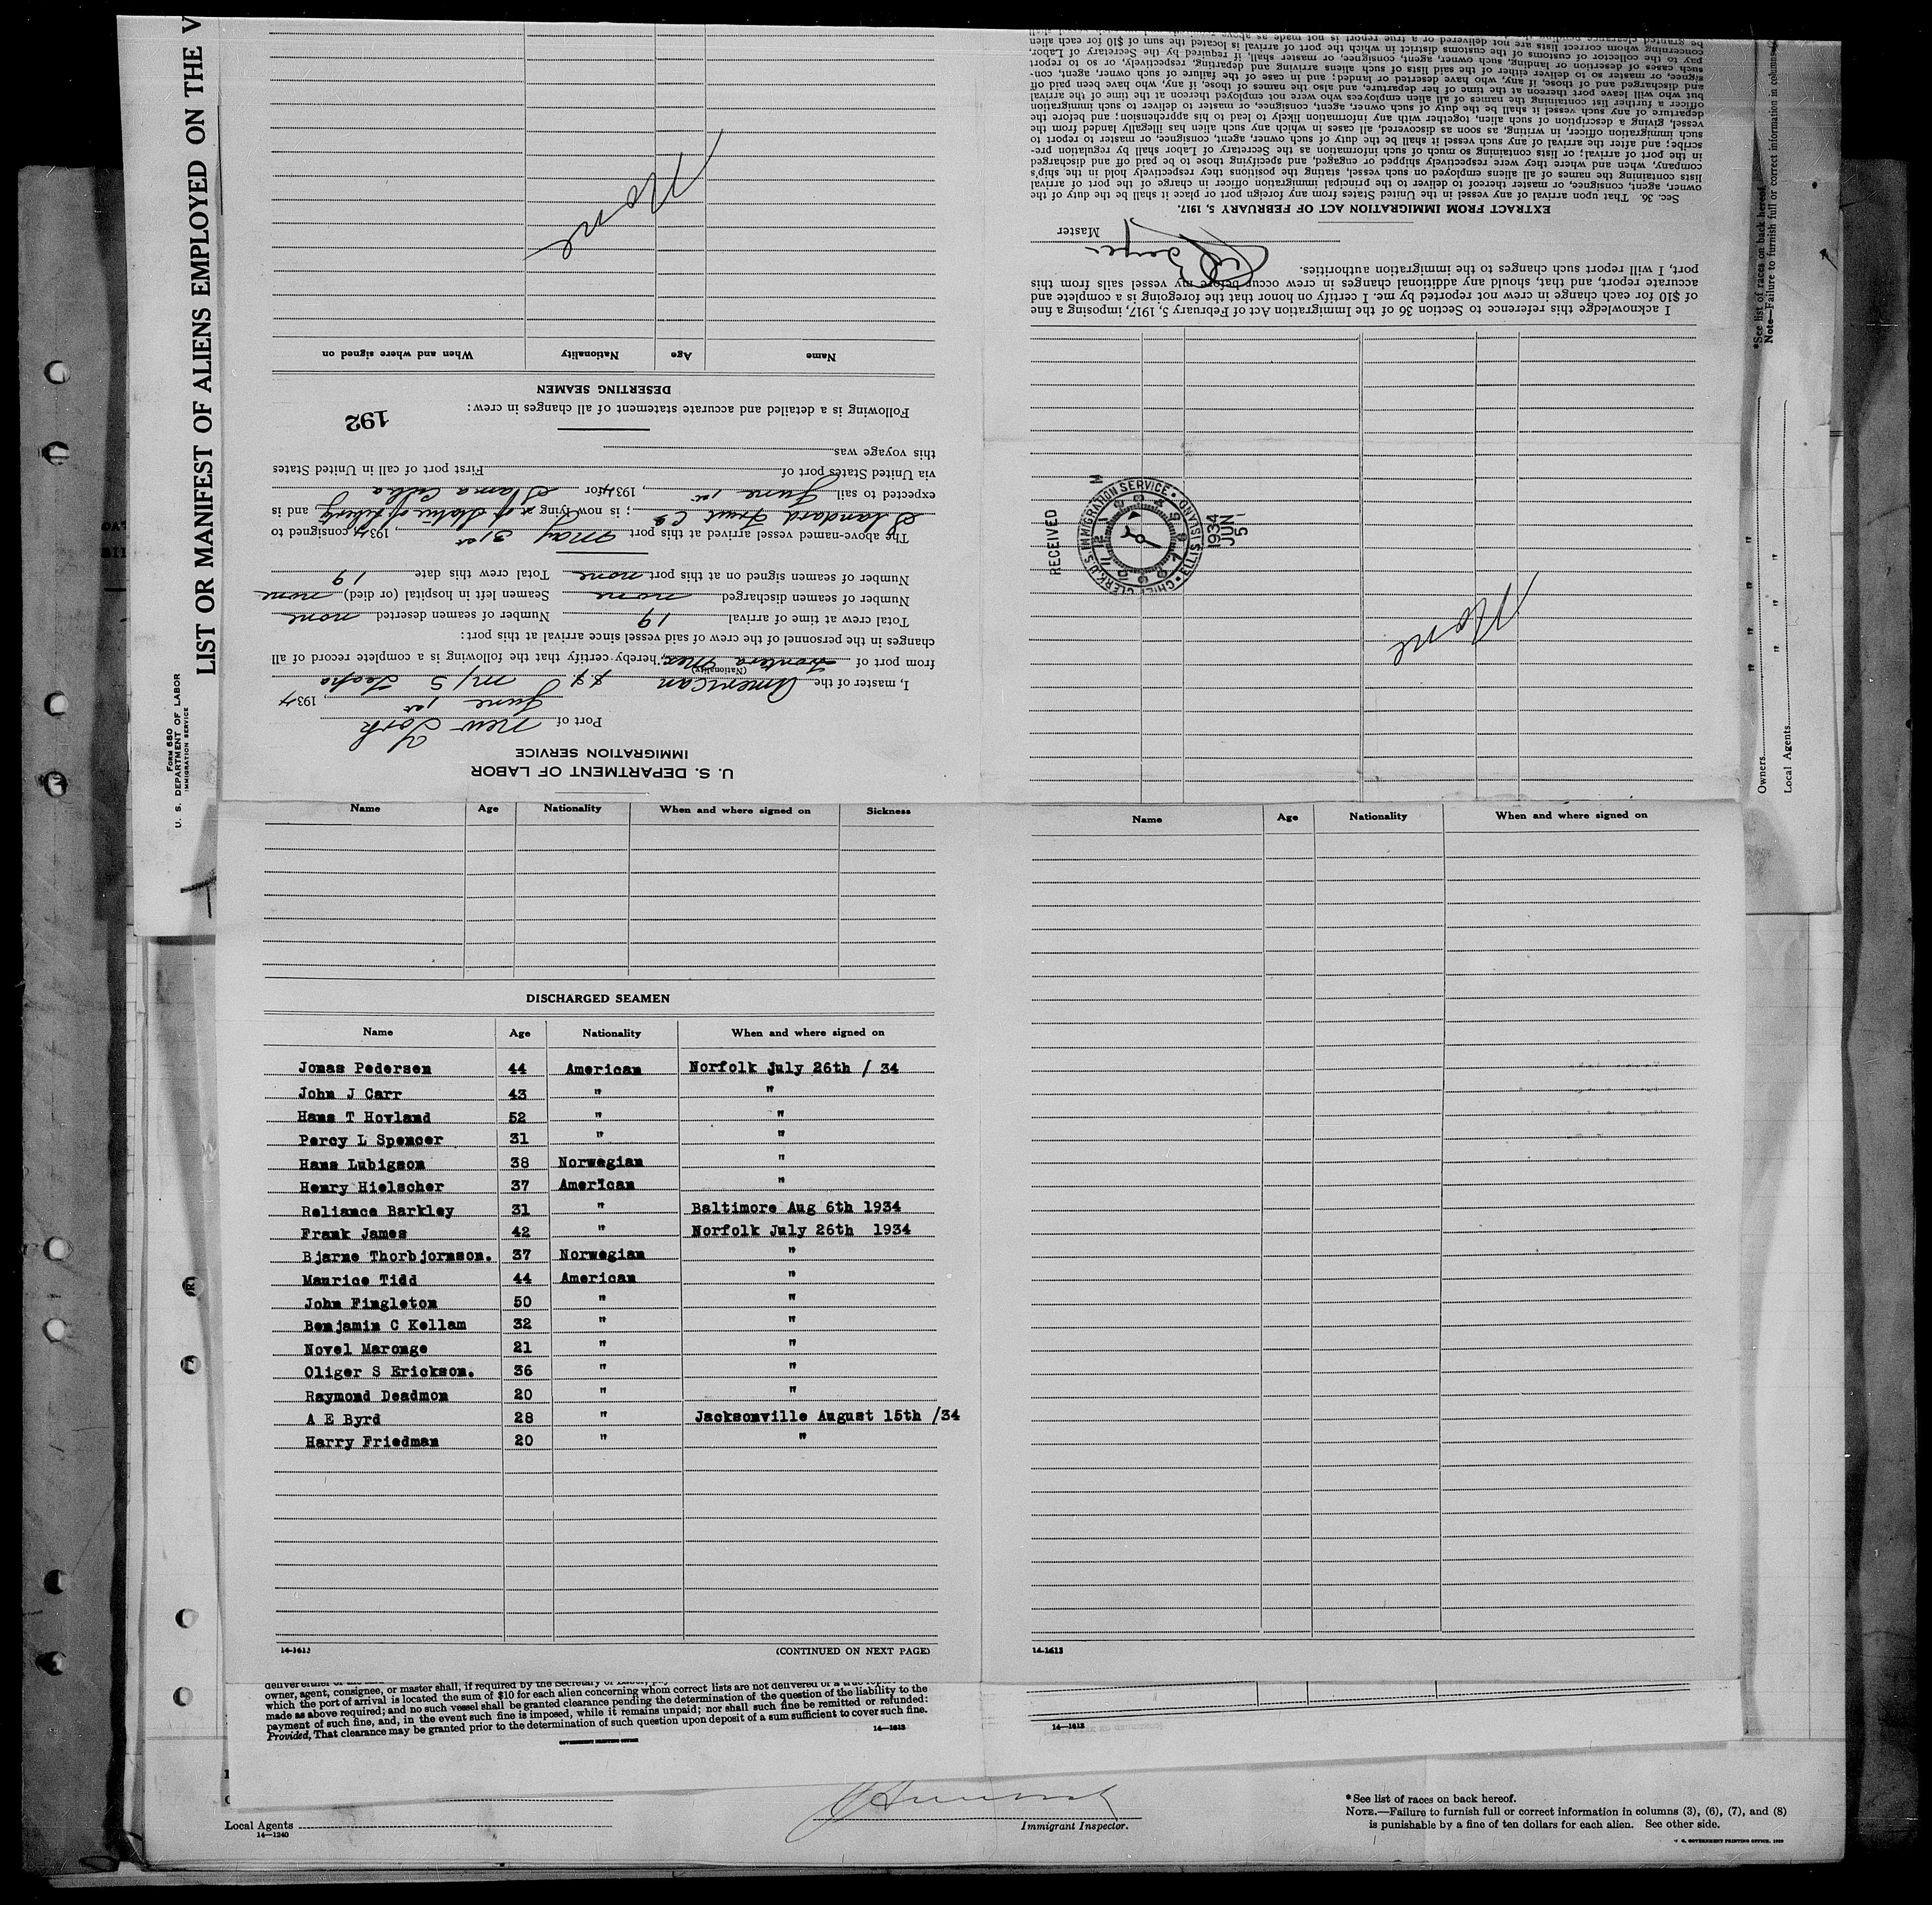 LIST OR MANIFEST OF ALIENS EMPLOYED ON THE V
FORM 680
U. S. DEPARTMENT OF LABOR
IMMIGRATION SERVICE
U. S. DEPARTMENT OF LABOR
IMMIGRATION SERVICE
Port of New York
June 1st, 1934
I, master of the American M/S Teapa
(Nationality)
from port of Frontera Mex, hereby certify that the following is a complete record of all
changes in the personnel of the crew of said vessel since arrival at this port:
Total crew at time of arrival 19 Number of seamen deserted none
Number of seamen discharged none Seamen left in hospital (or died) none
Number of seamen signed on at this port none Total crew this date 19
The above-named vessel arrived at this port May 31st, 1934, consigned to
Standard Fruit Co; is now lying at Statue of Liberty and is
expected to sail June 1st, 1934 for
via United States port of First port of call in United States
this voyage was
Following is a detailed and accurate statement of all changes in crew:
192
DESERTING SEAMEN
Name Age Nationality When and where signed on
None
None
RECEIVED
CHIEF CLERK, U.S. IMMIGRATION SERVICE • ELLIS ISLAND.
M
1934
JUN
5
I acknowledge this reference to Section 36 of the Immigration Act of February 5, 1917, imposing a fine
of $10 for each change in crew not reported by me. I certify on honor that the foregoing is a complete and
accurate report, and that, should any additional changes in crew occur before my vessel sails from this
port, I will report such changes to the immigration authorities.
Master
EXTRACT FROM IMMIGRATION ACT OF FEBRUARY 5, 1917.
Sec. 36. That upon arrival of any vessel in the United States from any foreign port or place it shall be the duty of the
owner, agent, consignee, or master thereof to deliver to the principal immigration officer in charge of the port of arrival
lists containing the names of all aliens employed on such vessel, stating the positions they respectively hold in the ship's
company, when and where they were respectively shipped or engaged, and specifying those to be paid off and discharged
in the port of arrival; or lists containing so much of such information as the Secretary of Labor shall by regulation pre-
scribe; and after the arrival of any such vessel it shall be the duty of such owner, agent, consignee, or master to report to
such immigration officer, in writing, as soon as discovered, all cases in which any such alien has illegally landed from the
vessel, giving a description of such alien, together with any information likely to lead to his apprehension; and before the
departure of any such vessel it shall be the duty of such owner, agent, consignee, or master to deliver to such immigration
officer a further list containing the names of all alien employees who were not employed thereon at the time of the arrival
but who will leave port thereon at the time of her departure, and also the names of those, if any, who have been paid off
and discharged and of those, if any, who have deserted or landed; and in case of the failure of such owner, agent, con-
signee, or master so to deliver either of the said lists of such aliens arriving and departing, respectively, or so to report
such cases of desertion or landing, such owner, agent, consignee, or master shall, if required by the Secretary of Labor,
pay to the collector of customs of the customs district in which the port of arrival is located the sum of $10 for each alien
concerning whom correct lists are not delivered or a true report is not made as above
*See list of races on back hereof.
Note—Failure to furnish full or correct information in columns
Owners
Local Agents
Name Age Nationality When and where signed on Sickness
DISCHARGED SEAMEN
Name Age Nationality When and where signed on
Jonas Pedersen 44 American Norfolk July 26th / 34
John J Carr 43 " "
Hans T Hovland 52 " "
Percy L Spencer 31 " "
Hans Lubigson 38 Norwegian "
Henry Hielscher 37 American "
Reliance Barkley 31 " Baltimore Aug 6th 1934
Frank James 42 " Norfolk July 26th 1934
Bjarne Thorbjornson. 37 Norwegian "
Maurice Tidd 44 American "
John Fingleton 50 " "
Benjamin C Kellam 32 " "
Novel Maronge 21 " "
Oliger S Erickson. 36 " "
Raymond Deadmon 20 " "
A E Byrd 28 " Jacksonville August 15th /34
Harry Friedman 20 " "
14-1613 (CONTINUED ON NEXT PAGE)
Name Age Nationality When and where signed on
14-1613
owner, agent, consignee, or master shall, if required by the Secretary of Labor,
which the port of arrival is located the sum of $10 for each alien concerning whom correct lists are not delivered or a true
made as above required; and no such vessel shall be granted clearance pending the determination of the question of the liability to the
payment of such fine, and, in the event such fine is imposed, while it remains unpaid; nor shall such fine be remitted or refunded:
Provided, That clearance may be granted prior to the determination of such question upon deposit of a sum sufficient to cover such fine.
14—1613
GOVERNMENT PRINTING OFFICE
14—1613
Local Agents
14—1240
Immigrant Inspector.
*See list of races on back hereof.
NOTE.—Failure to furnish full or correct information in columns (3), (6), (7), and (8)
is punishable by a fine of ten dollars for each alien. See other side.
U. S. GOVERNMENT PRINTING OFFICE